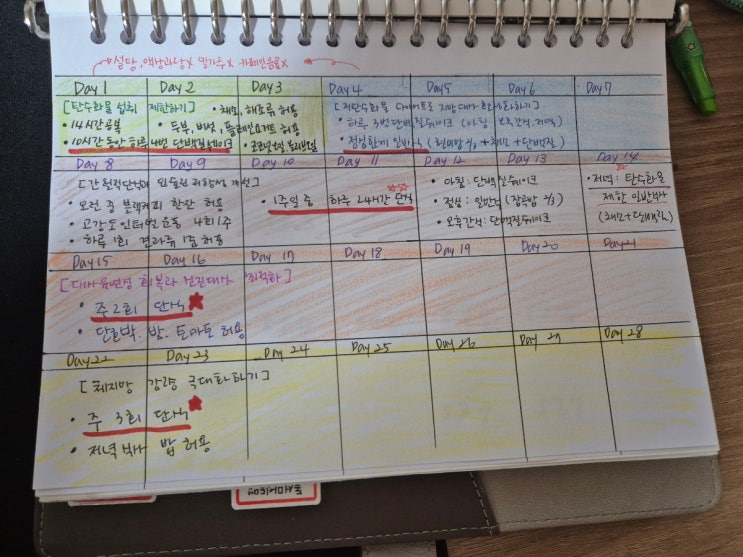 설탕, 액상과당X 밀가루X 카페인음료X
Day 1 Day 2 Day 3 Day 4 Day 5 Day 6 Day 7
[탄수화물 섭취 제한하기]
• 14시간 공복
• 10시간동안 하루 4번 단백질쉐이크
• 채소, 해조류 허용
• 두부, 버섯, 플레인요거트 허용
• 코코넛오일 올리브오일
[저탄수화물 다이어트로 지방대사 활성화하기]
• 하루 3번 단백질쉐이크 (아침 오후간식.저녁)
• 점심한끼 일반식 (현미밥 2/3 + 채소 + 단백질)
Day 8 Day 9 Day 10 Day 11 Day 12 Day 13 Day 14
[간헐적단식과 인슐린 저항성 개선]
• 오전 중 블랙커피 한잔 허용
• 고강도 인터벌 운동 4회 1주
• 하루 1회 견과류 1줌 허용
• 1주일 중 하루 24시간 단식
• 아침: 단백질쉐이크
• 점심: 일반식 (잡곡밥 2/3)
• 오후간식: 단백질쉐이크
• 저녁: 탄수화물
제한 일반식사
Day 15 Day 16 Day 17 Day 18 Day 19 Day 20 Day 21
[대사유연성 회복과 최적화]
• 주 2회 단식
• 단호박, 밤, 토마토 허용
Day 22 Day 23 Day 24 Day 25 Day 26 Day 27 Day 28
[체지방 감량 극대화하기]
• 주 3회 단식
• 저녁식사 밥 허용